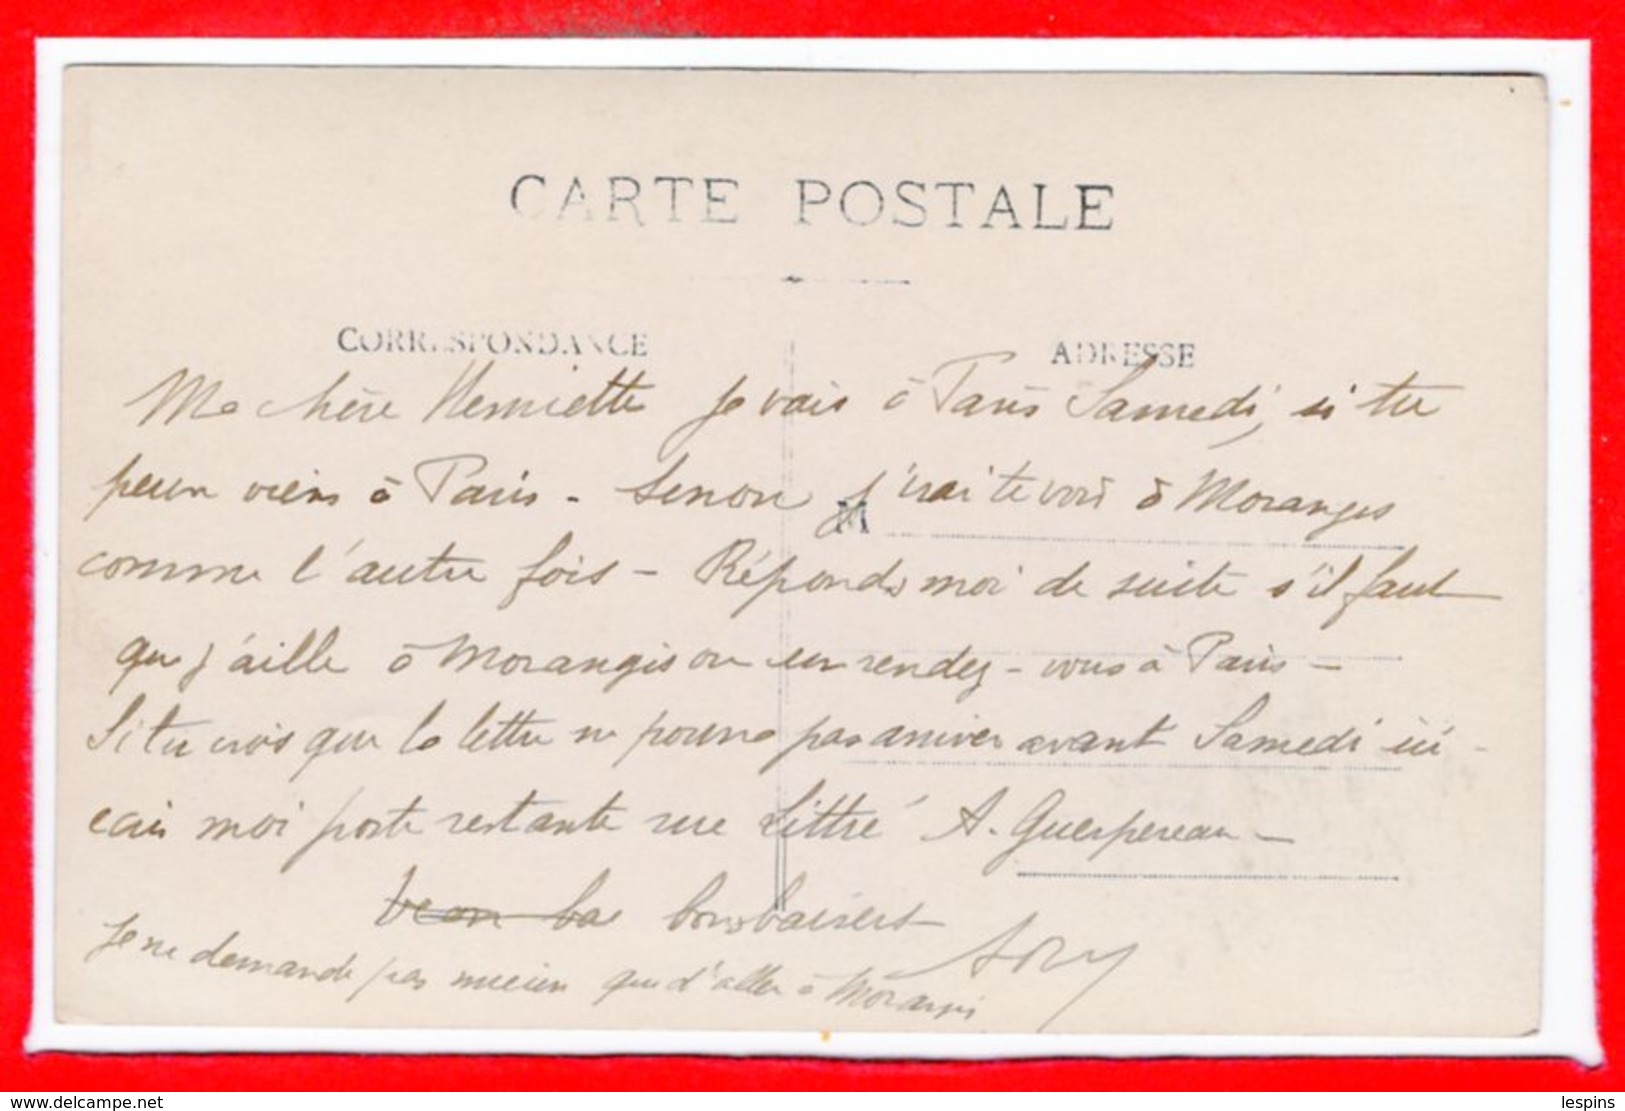 CARTE POSTALE
CORRESPONDANCE
ADRESSE
Ma chère Henriette je vais à Paris Samedi, si tu
peux viens à Paris - Senon j'irai te voir à Moranges
M
comme l'autre fois - Réponds moi de suite s'il faut
que j'aille à Morangis ou en rendez-vous à Paris -
Si tu crois que la lettre ne pourra pas arriver avant Samedi ici -
écris moi poste restante rue Littré A. Guerpereau -
bons baisers
Je ne demande pas mieux que d'aller à Morangis
www.delcampe.net
lespins